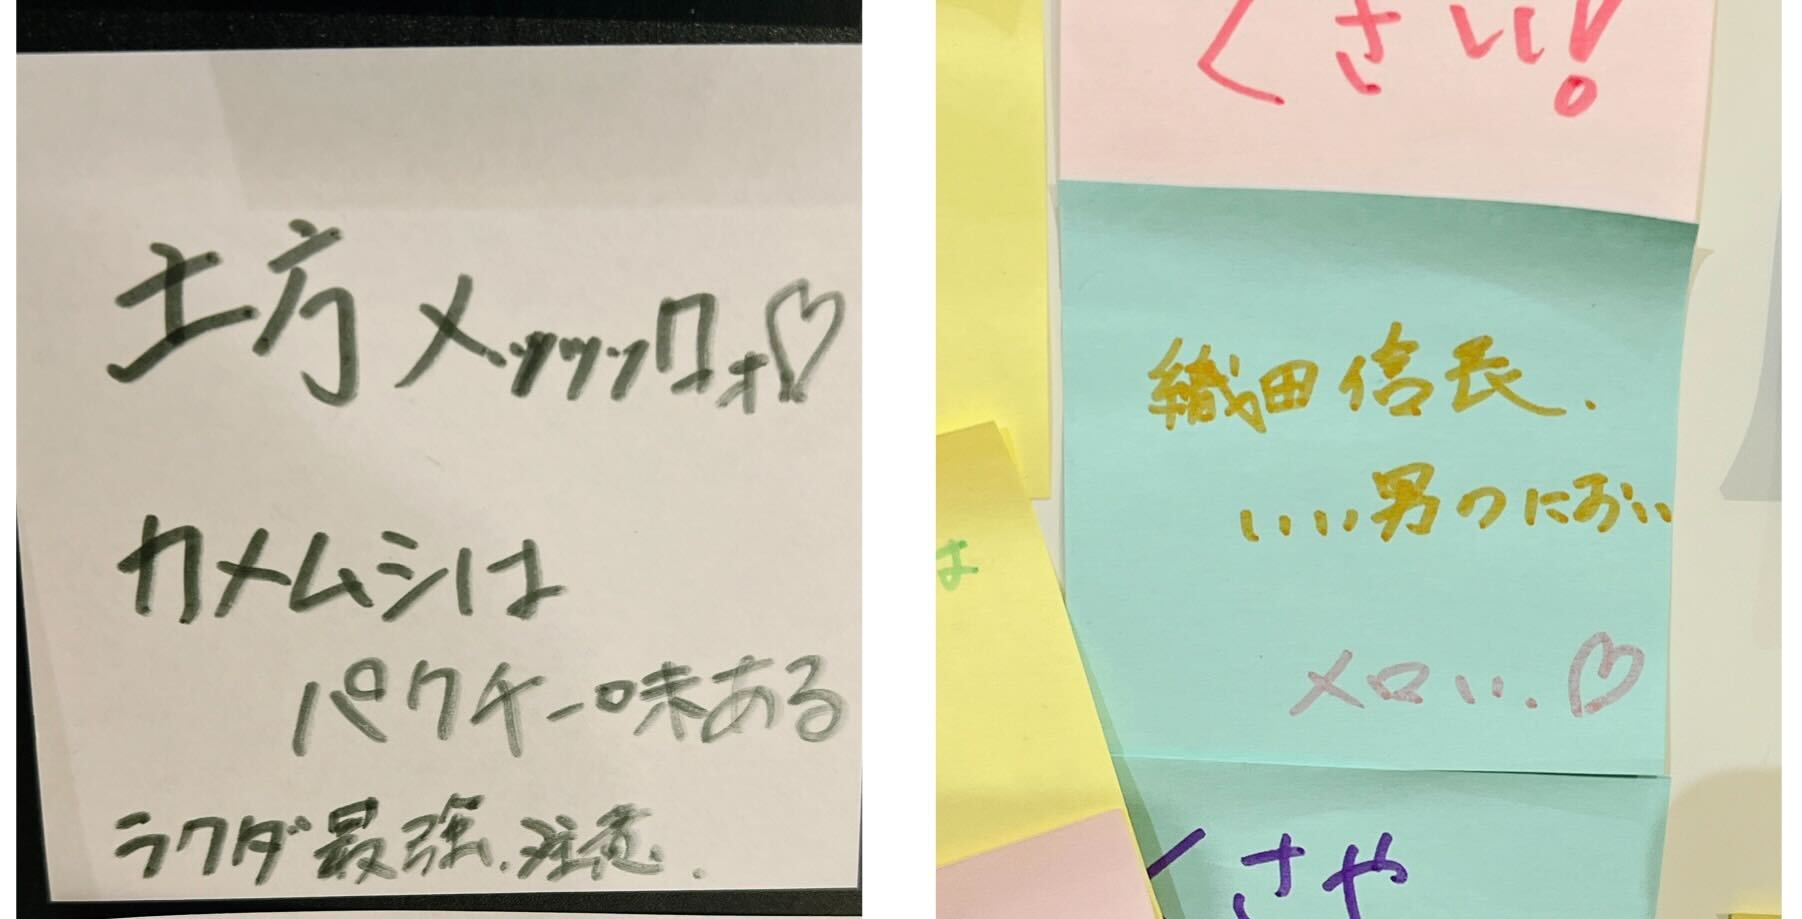 土方メッッッッロォ♡
カメムシは
パクチー味ある
ラクダ最強.注意.
くさい!
織田信長.
いい男のにおい
メロい.♡
は
くさや